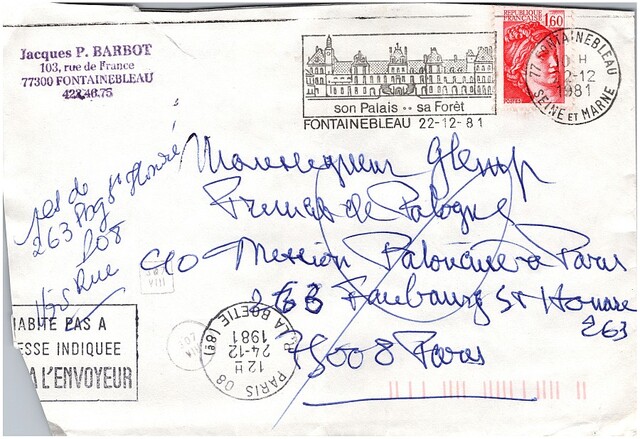 Jacques P. BARBOT
103, rue de France
77300 FONTAINEBLEAU
422.46.75
son Palais •• sa Forêt
FONTAINEBLEAU 22-12-81
REPUBLIQUE
FRANÇAISE
1,60
POSTES
77 FONTAINEBLEAU
10 H
22-12
1981
SEINE ET MARNE
Monseigneur Glemp
Primat de Pologne
c/o Mission
Paris
263 Faubourg St Honoré
263
75008 Paris
pas de
263 Fbg St Honoré
Rue
HABITE PAS A
ESSE INDIQUEE
A L'ENVOYEUR
PARIS 08
R. LA BOETIE (8e)
12 H
24-12
1981